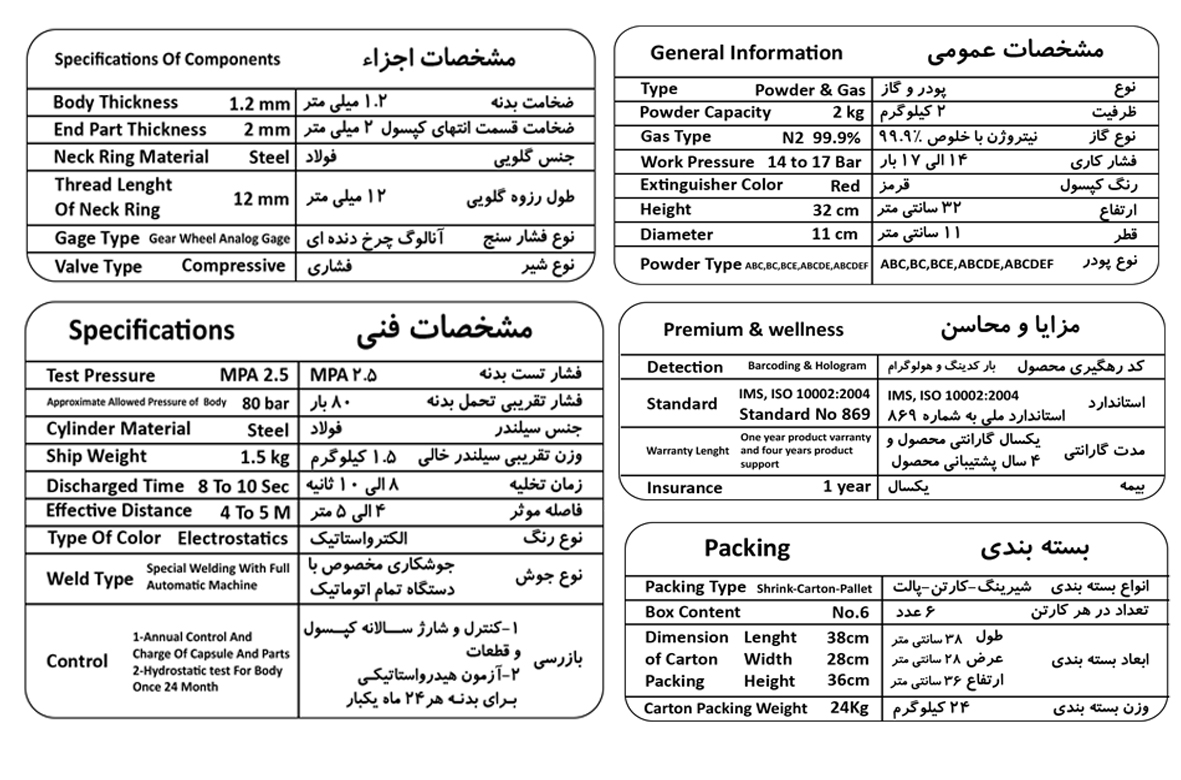 Specifications Of Components مشخصات اجزاء
Body Thickness 1.2 mm ۱.۲ میلی متر ضخامت بدنه
End Part Thickness 2 mm ۲ میلی متر ضخامت قسمت انتهای کپسول
Neck Ring Material Steel فولاد جنس گلویی
Thread Lenght
Of Neck Ring 12 mm ۱۲ میلی متر طول رزوه گلویی
Gage Type Gear Wheel Analog Gage آنالوگ چرخ دنده ای نوع فشار سنج
Valve Type Compressive فشاری نوع شیر
General Information مشخصات عمومی
Type Powder & Gas پودر و گاز نوع
Powder Capacity 2 kg ۲ کیلوگرم ظرفیت
Gas Type N2 99.9% نیتروژن با خلوص ۹۹.۹٪ نوع گاز
Work Pressure 14 to 17 Bar ۱۴ الی ۱۷ بار فشار کاری
Extinguisher Color Red قرمز رنگ کپسول
Height 32 cm ۳۲ سانتی متر ارتفاع
Diameter 11 cm ۱۱ سانتی متر قطر
Powder Type ABC,BC,BCE,ABCDE,ABCDEF ABC,BC,BCE,ABCDE,ABCDEF نوع پودر
Specifications مشخصات فنی
Test Pressure MPA 2.5 MPA ۲.۵ فشار تست بدنه
Approximate Allowed Pressure of Body 80 bar ۸۰ بار فشار تقریبی تحمل بدنه
Cylinder Material Steel فولاد جنس سیلندر
Ship Weight 1.5 kg ۱.۵ کیلوگرم وزن تقریبی سیلندر خالی
Discharged Time 8 To 10 Sec ۸ الی ۱۰ ثانیه زمان تخلیه
Effective Distance 4 To 5 M ۴ الی ۵ متر فاصله موثر
Type Of Color Electrostatics الکترواستاتیک نوع رنگ
Weld Type Special Welding With Full
Automatic Machine
جوشکاری مخصوص با
دستگاه تمام اتوماتیک نوع جوش
Control
1-Annual Control And
Charge Of Capsule And Parts
2-Hydrostatic test For Body
Once 24 Month
۱-کنترل و شارژ سـالانه کپـسول
و قطعات
۲-آزمون هیدرواستاتیکـی
بـرای بدنـه هر ۲۴ ماه یکبار
بازرسی
Premium & wellness مزایا و محاسن
Detection Barcoding & Hologram بار کدینگ و هولوگرام کد رهگیری محصول
Standard
IMS, ISO 10002:2004
Standard No 869
IMS, ISO 10002:2004
استاندارد ملی به شماره ۸۶۹
استاندارد
Warranty Lenght
One year product varranty
and four years product
support
یکسال گارانتی محصول و
۴ سال پشتیبانی محصول
مدت گارانتی
Insurance 1 year یکسال بیمه
Packing بسته بندی
Packing Type Shrink-Carton-Pallet شیرینگ-کارتن-پالت انواع بسته بندی
Box Content No.6 ۶ عدد تعداد در هر کارتن
Dimension Lenght 38cm طول ۳۸ سانتی متر
of Carton Width 28cm عرض ۲۸ سانتی متر ابعاد بسته بندی
Packing Height 36cm ارتفاع ۳۶ سانتی متر
Carton Packing Weight 24Kg ۲۴ کیلوگرم وزن بسته بندی